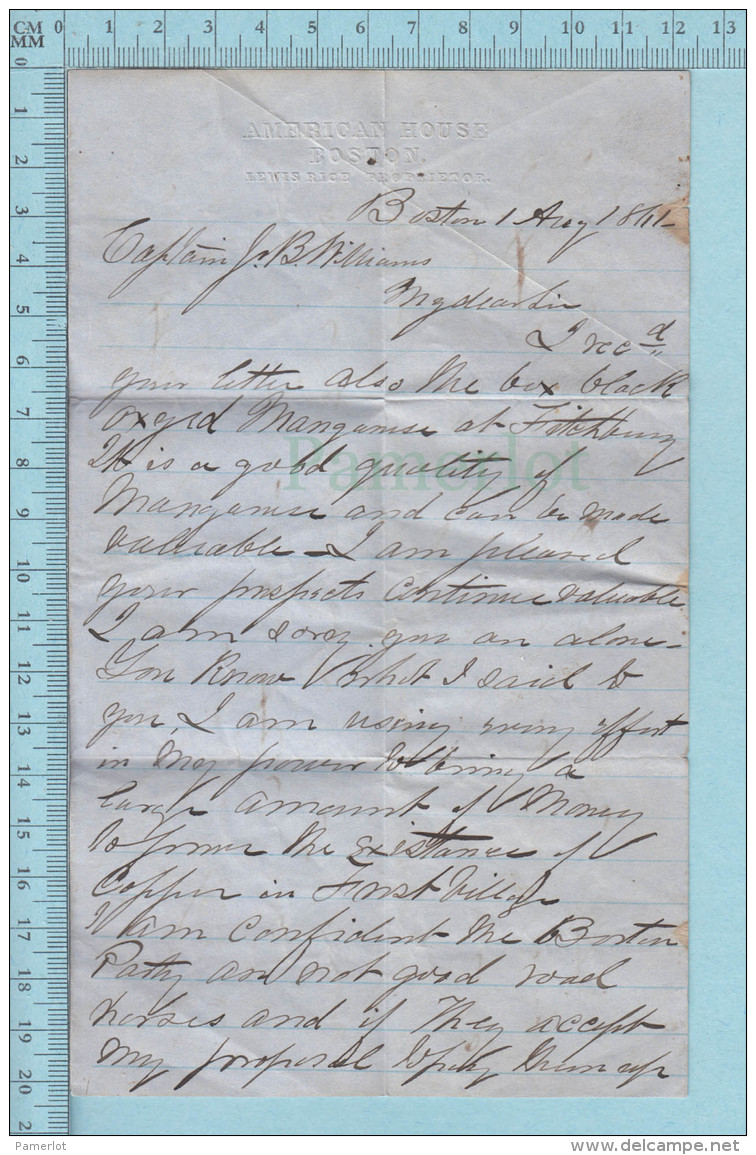 AMERICAN HOUSE
BOSTON.
LEWIS RICE PROPRIETOR.
Boston 1 Aug 1861
Captain J. B. Williams
My dear Sir
I rec d
your letter also the box black
oxyed Manganese at Fitchburg
It is a good quality of
Manganese and can be made
valuable - I am pleased
your prospects continue valuable
I am sorry you are alone -
You Know what I said to
you, I am using every effort
in my power to bring a
large amount of Money
to prove the existance of
Copper in Forist Village
I am confident the Boston
Party are not good road
horses and if they accept
my proposal to pay them up
Pamerlot
CM
MM
0 1 2 3 4 5 6 7 8 9 10 11 12 13
0
1
2
3
4
5
6
7
8
9
10
11
12
13
14
15
16
17
18
19
20
2
Pamerlot
www.delcampe.net